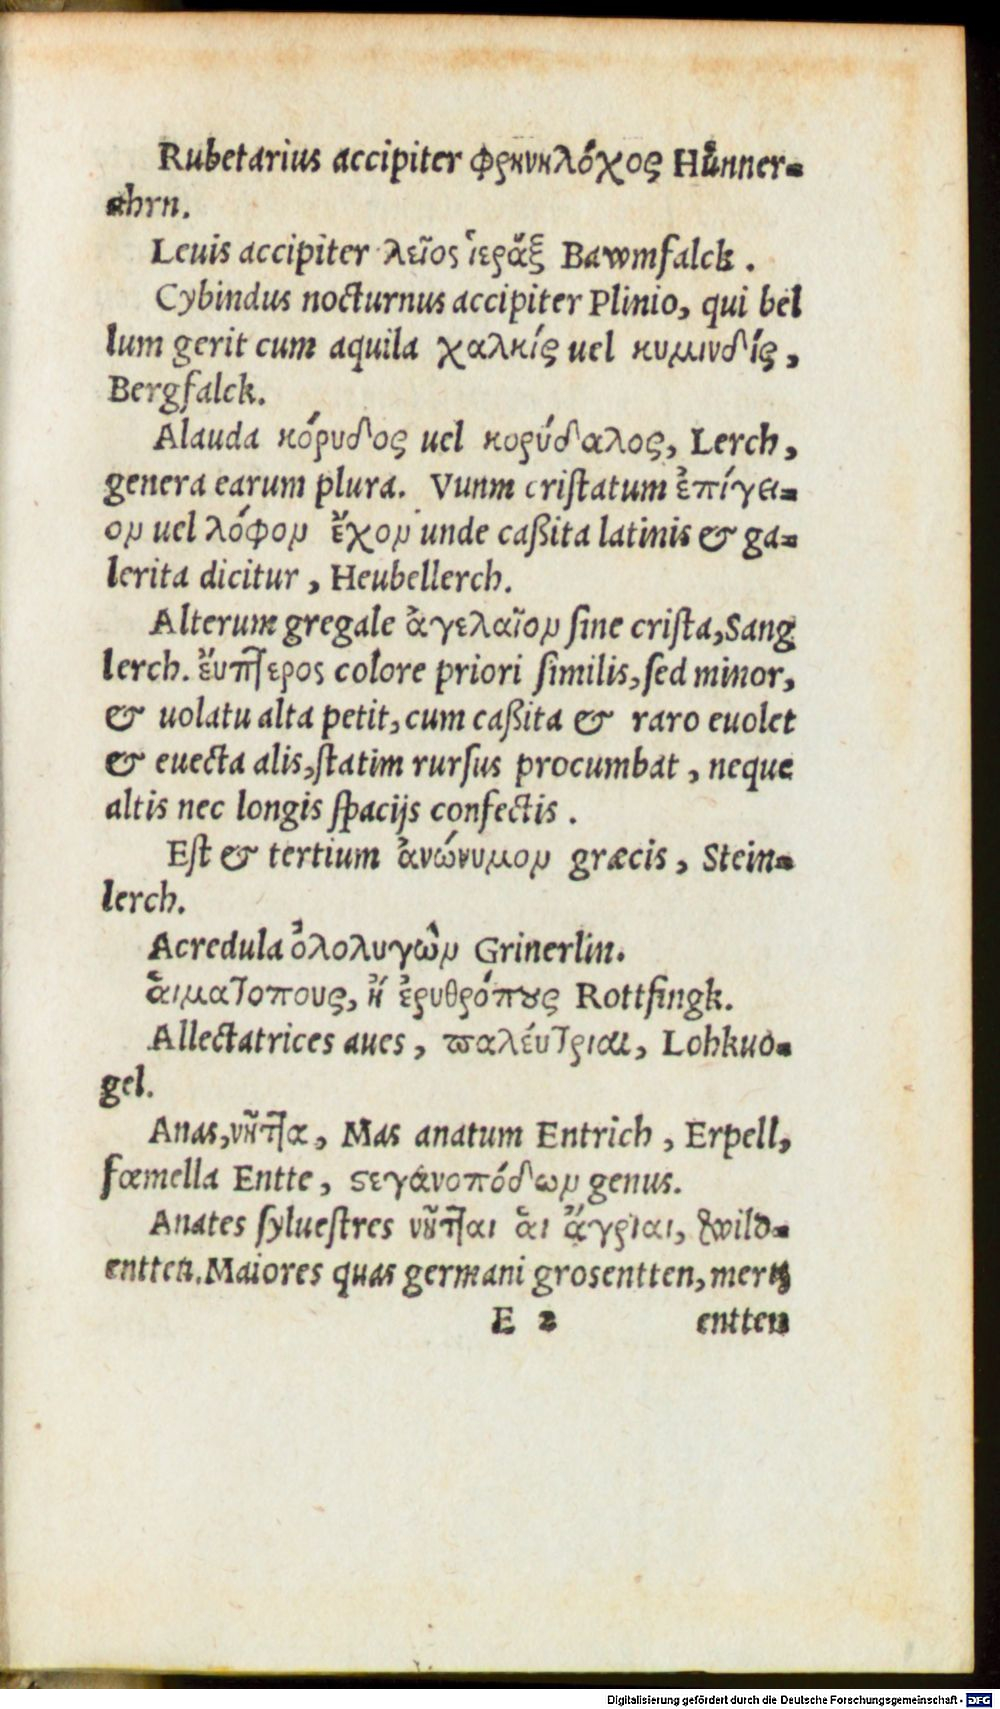 Rubetarius accipiter φρκνκλόχος Hůnner-
ahrn.
Leuis accipiter λεῖος ἱεράξ Bawmfalck.
Cybindus nocturnus accipiter Plinio, qui bel
lum gerit cum aquila χαλκίς uel κυμινδίς,
Bergfalck.
Alauda κόρυδος uel κορύδαλος, Lerch,
genera earum plura. Vunm cristatum ἐπίγει-
ον uel λόφον ἔχον unde caßita latinis & ga-
lerita dicitur, Heubellerch.
Alterum gregale ἀγελαῖον sine crista, Sang
lerch. ἔυπτερος colore priori similis, sed minor,
& uolatu alta petit, cum caßita & raro euolet
& euecta alis, statim rursus procumbat, neque
altis nec longis spacijs confectis.
Est & tertium ἀνώνυμον græcis, Stein-
lerch.
Acredula ὀλολυγῶν Grinerlin.
ἁιματοπους, ἢ ἐρυθρόπȣς Rottfingk.
Allectatrices aues, παλέυτριαι, Lohkuo-
gel.
Anas, νῆττα, Mas anatum Entrich, Erpell,
fœmella Entte, ϛεγάνοπόδων genus.
Anates syluestres νῆτται ἁι ἄγριαι, Wild-
entten. Maiores quas germani grosentten, mertz
E 2 entten
Digitalisierung gefördert durch die Deutsche Forschungsgemeinschaft - DFG